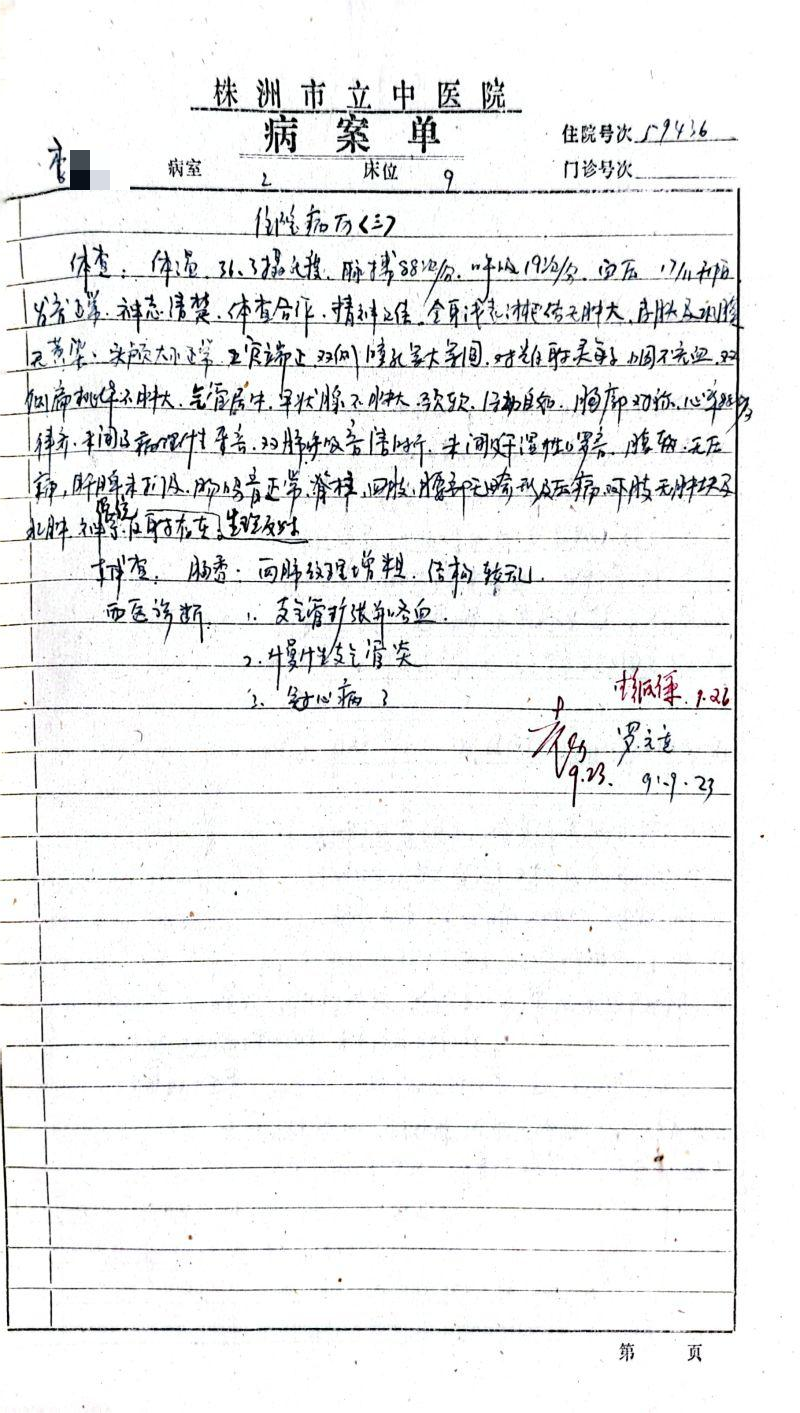 株洲市立中医院
病案单
住院号次 59436
李
病室 2 床位 9
门诊号次
住院病历〈三〉
体查: 体温 36.3摄氏度. 脉搏88次/分. 呼吸19次/分. 血压 17/11
发育正常. 神志清楚. 体查合作. 精神 佳. 全身浅表淋巴结无肿大. 皮肤及巩膜
无黄染. 头颅大小正常. 五官端正. 双侧瞳孔等大等圆. 对光反射灵敏. 咽不充血. 双
侧扁桃体不肿大. 气管居中. 甲状腺不肿大. 颈软. 活动自如. 胸廓对称. 心率88次/分
律齐. 未闻及病理性杂音. 双肺呼吸音清晰. 未闻及干湿性啰音. 腹软. 无压
痛, 肝脾未扪及. 肠鸣音正常. 脊柱. 四肢. 腰部无畸形及压痛. 双肢无肿块及
水肿. 神经系统 生理反射
辅查: 胸透: 两肺纹理增粗. 结构较乱.
西医诊断. 1. 支气管扩张并咯血.
2. 慢性支气管炎
3. 心病?
9.26
罗
9.23. 91.9.23
第 页